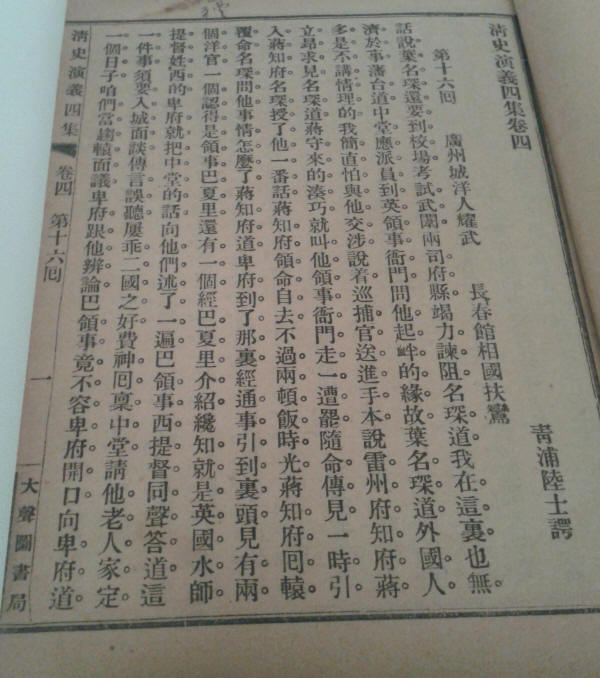 清史演義四集卷四
青浦陸士諤
第十六回 廣州城洋人耀武 長春館相國扶鸞
話說葉名琛還要到校場考試武闈兩司府縣竭力諫阻名琛道我在這裏也無。
濟於事藩台道中堂應派員到英領事衙門問他起衅的緣故葉名琛道外國人。
多是不講情理的我簡直怕與他交涉說着巡捕官送進手本說雷州府知府蔣
立昂求見名琛道蔣守來的湊巧就叫他領事衙門走一遭罷隨命傳見一時引
入蔣知府名琛授了他一番話蔣知府領命自去不過兩頓飯時光蔣知府囘轅
覆命名琛問他事情怎麼了蔣知府道卑府到了那裏經通事引到裏頭見有兩
個洋官一個認得是領事巴夏里還有一個經巴夏里介紹纔知就是英國水師
提督姓西的卑府就把中堂的話向他們述了一遍巴領事西提督同聲答道這
一件事須要入城面談傳言誤聽屢乖二國之好費神囘稟中堂請他老人家定
一個日子咱們當趨轅面議卑府跟他辨論巴領事竟不容卑府開口向卑府道
清史演義四集 卷四 第十六囘 一 大聲圖書局